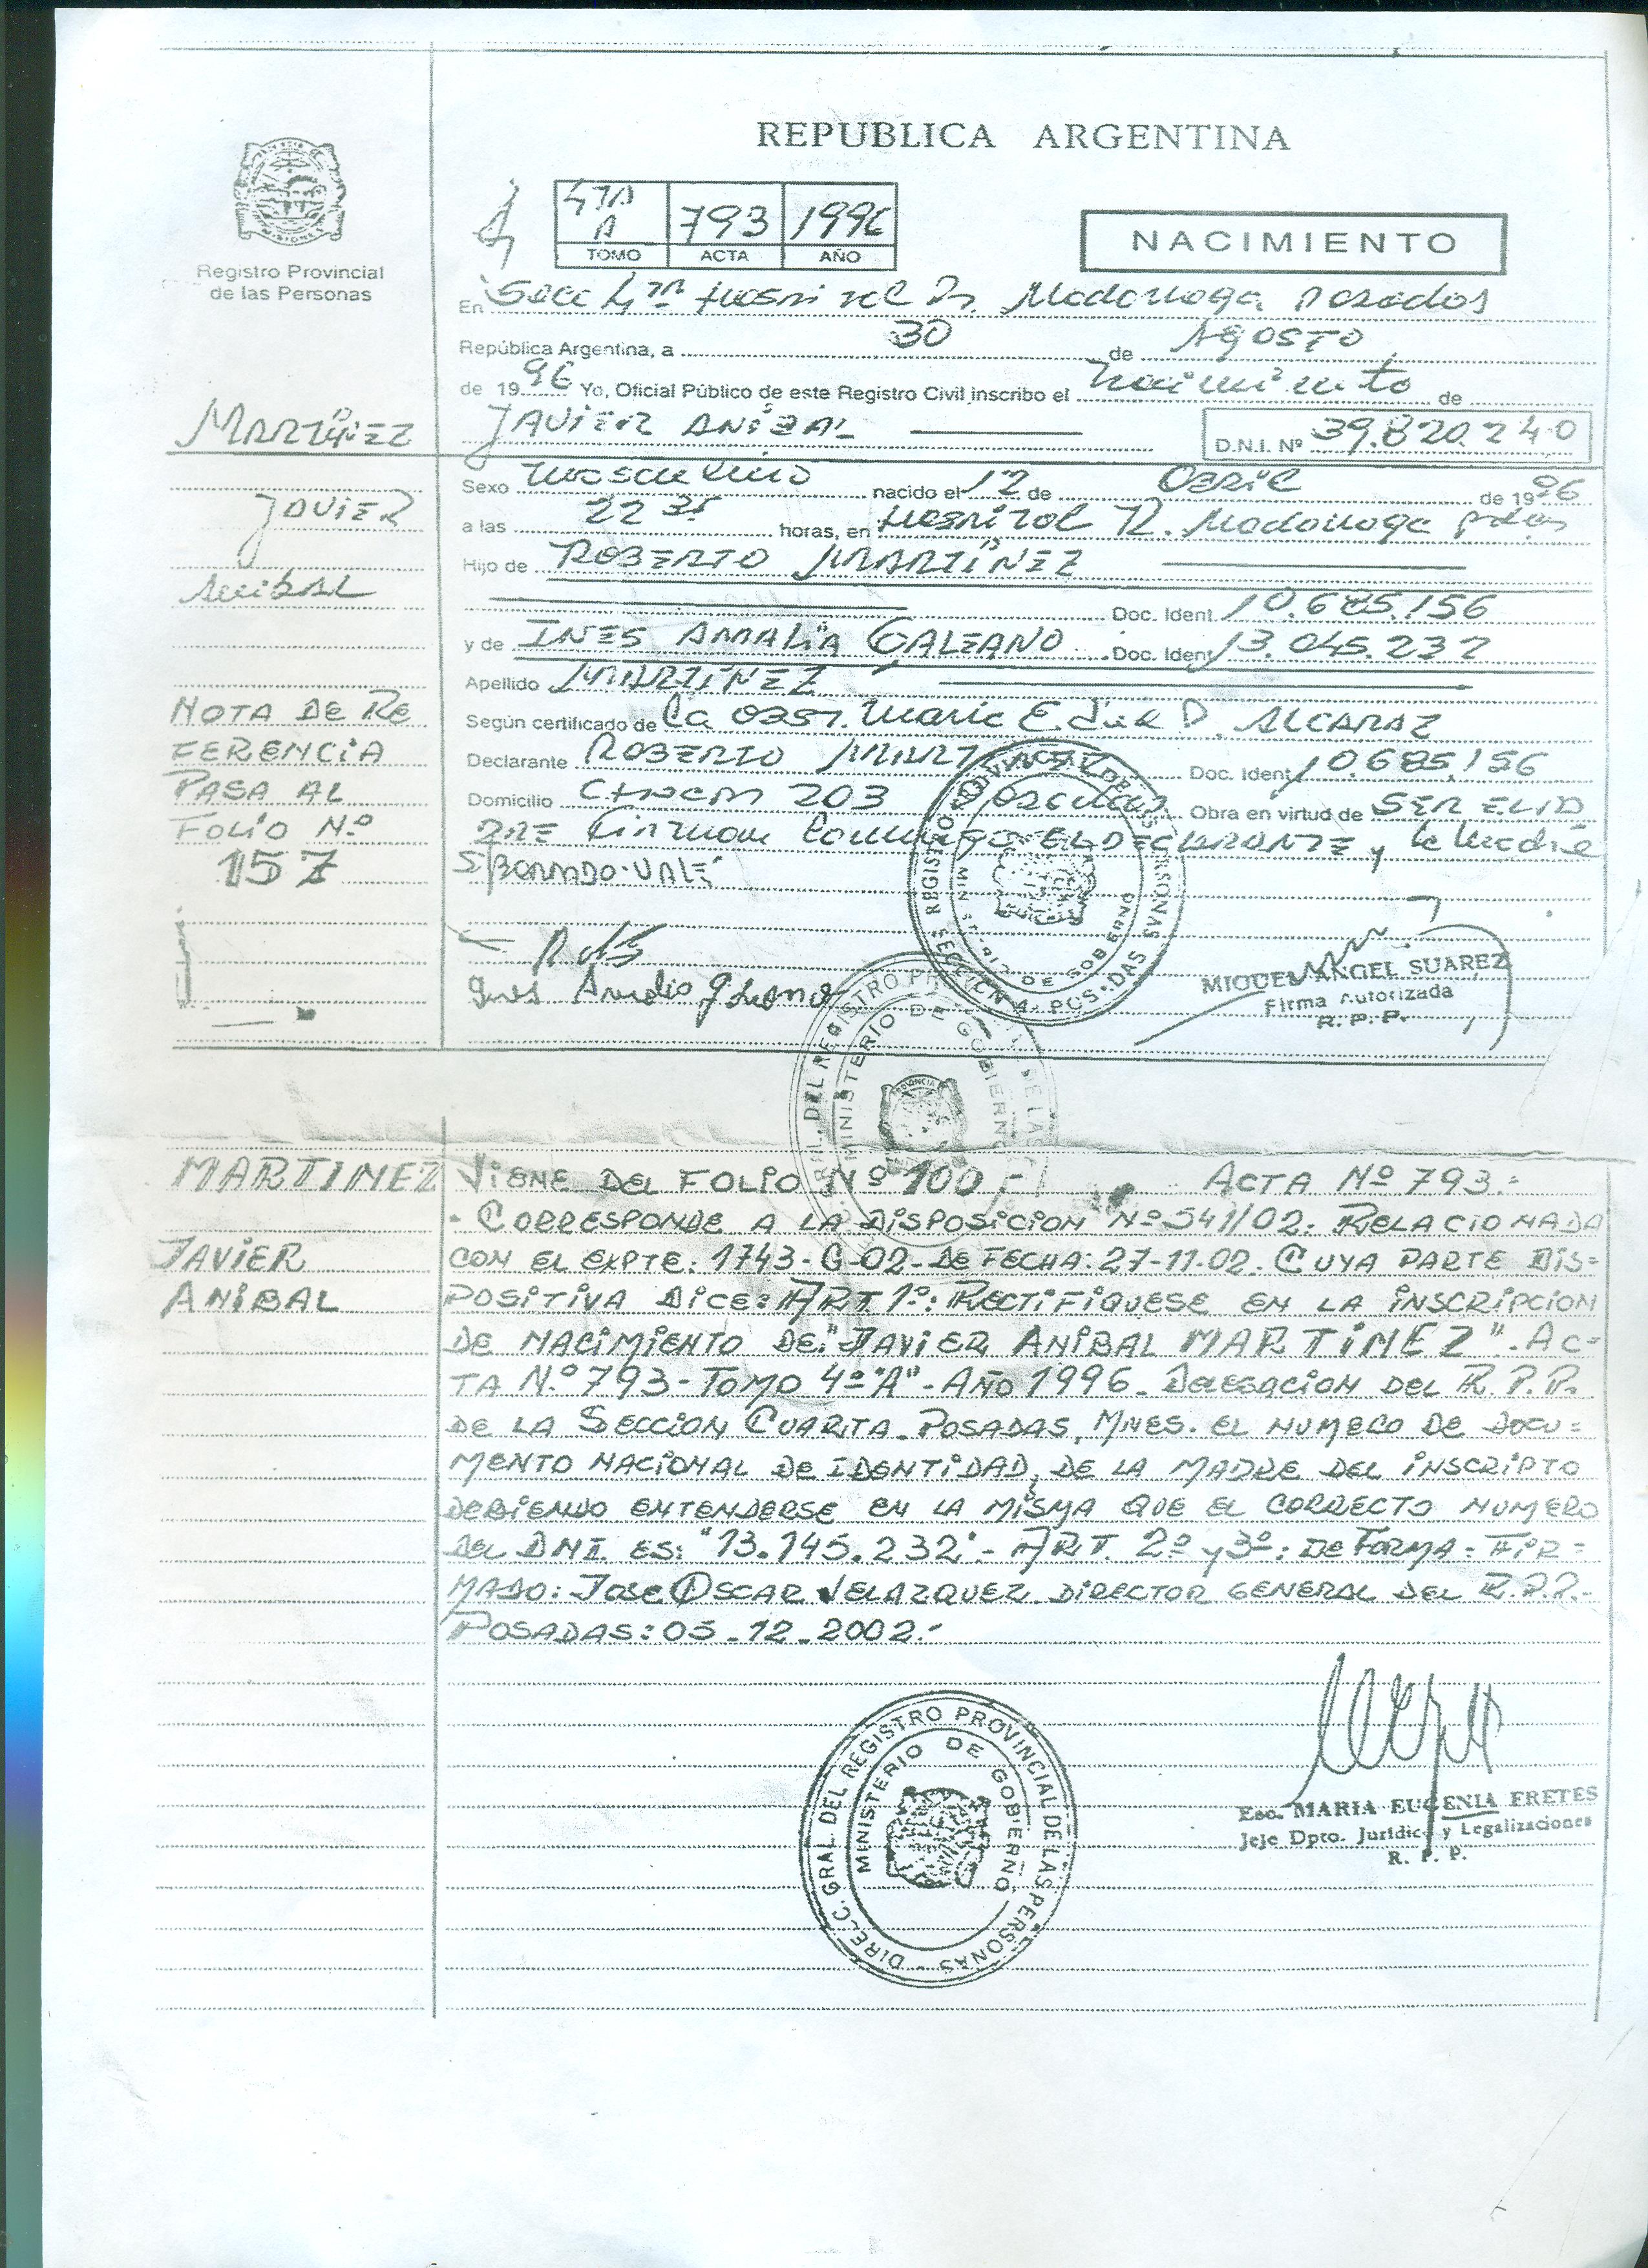 REPUBLICA ARGENTINA
Registro Provincial
de las Personas
4TA A 793 1996
TOMO ACTA AÑO
NACIMIENTO
En Secc 4ta Hospital R. Madariaga Posadas
República Argentina, a 30 de AGOSTO
de 1996 Yo, Oficial Público de este Registro Civil inscribo el nacimiento de
MARTINEZ
JAVIER ANIBAL D.N.I. Nº 39.820.240
JAVIER
ANIBAL
Sexo masculino nacido el 12 de de 1996
a las 22 horas, en Hospital R. Madariaga pdas
Hijo de ROBERTO MARTINEZ
Doc. Ident. 10.685.156
y de INES AMALIA GALEANO Doc. Ident. 13.045.232
Apellido MARTINEZ
Según certificado de la Obst. Maria E. D. ALCARAZ
Declarante ROBERTO MARTINEZ Doc. Ident. 10.685.156
Domicilio 203 Posadas Obra en virtud de SER EL PA
DRE Firman conmigo EL DECLARANTE y la madre
S/BORRADO-VALE
NOTA DE RE
FERENCIA
PASA AL
FOLIO Nº
157
MIGUEL ANGEL SUAREZ
Firma Autorizada
R. P. P.
REGISTRO PROVINCIAL DE LAS PERSONAS
SECCION 4 POSADAS
MINISTERIO DE GOBIERNO
MARTINEZ
JAVIER
ANIBAL
VIENE DEL FOLIO Nº 100 - ACTA Nº 793.-
- CORRESPONDE A LA DISPOSICION Nº 541/02: RELACIONADA
CON EL EXPTE: 1743-G-02- DE FECHA: 27-11-02. CUYA PARTE DIS-
POSITIVA DICE: ART 1º: RECTIFIQUESE EN LA INSCRIPCION
DE NACIMIENTO DE: "JAVIER ANIBAL MARTINEZ". AC-
TA Nº 793- TOMO 4º "A"- AÑO 1996- DELEGACION DEL R.P.P.
DE LA SECCION CUARTA- POSADAS, MNES. EL NUMERO DE DOCU-
MENTO NACIONAL DE IDENTIDAD, DE LA MADRE DEL INSCRIPTO
DEBIENDO ENTENDERSE EN LA MISMA QUE EL CORRECTO NUMERO
DEL DNI. ES: "13.145.232"- ART. 2º y 3º: DE FORMA- FIR-
MADO: JOSE OSCAR VELAZQUEZ DIRECTOR GENERAL DEL R.P.P.-
POSADAS: 05-12-2002.-
DIRECC. GRAL. DEL REGISTRO PROVINCIAL DE LAS PERSONAS
MINISTERIO DE GOBIERNO
Esc. MARIA EUGENIA ERETES
Jefe Dpto. Jurídico y Legalizaciones
R. P. P.